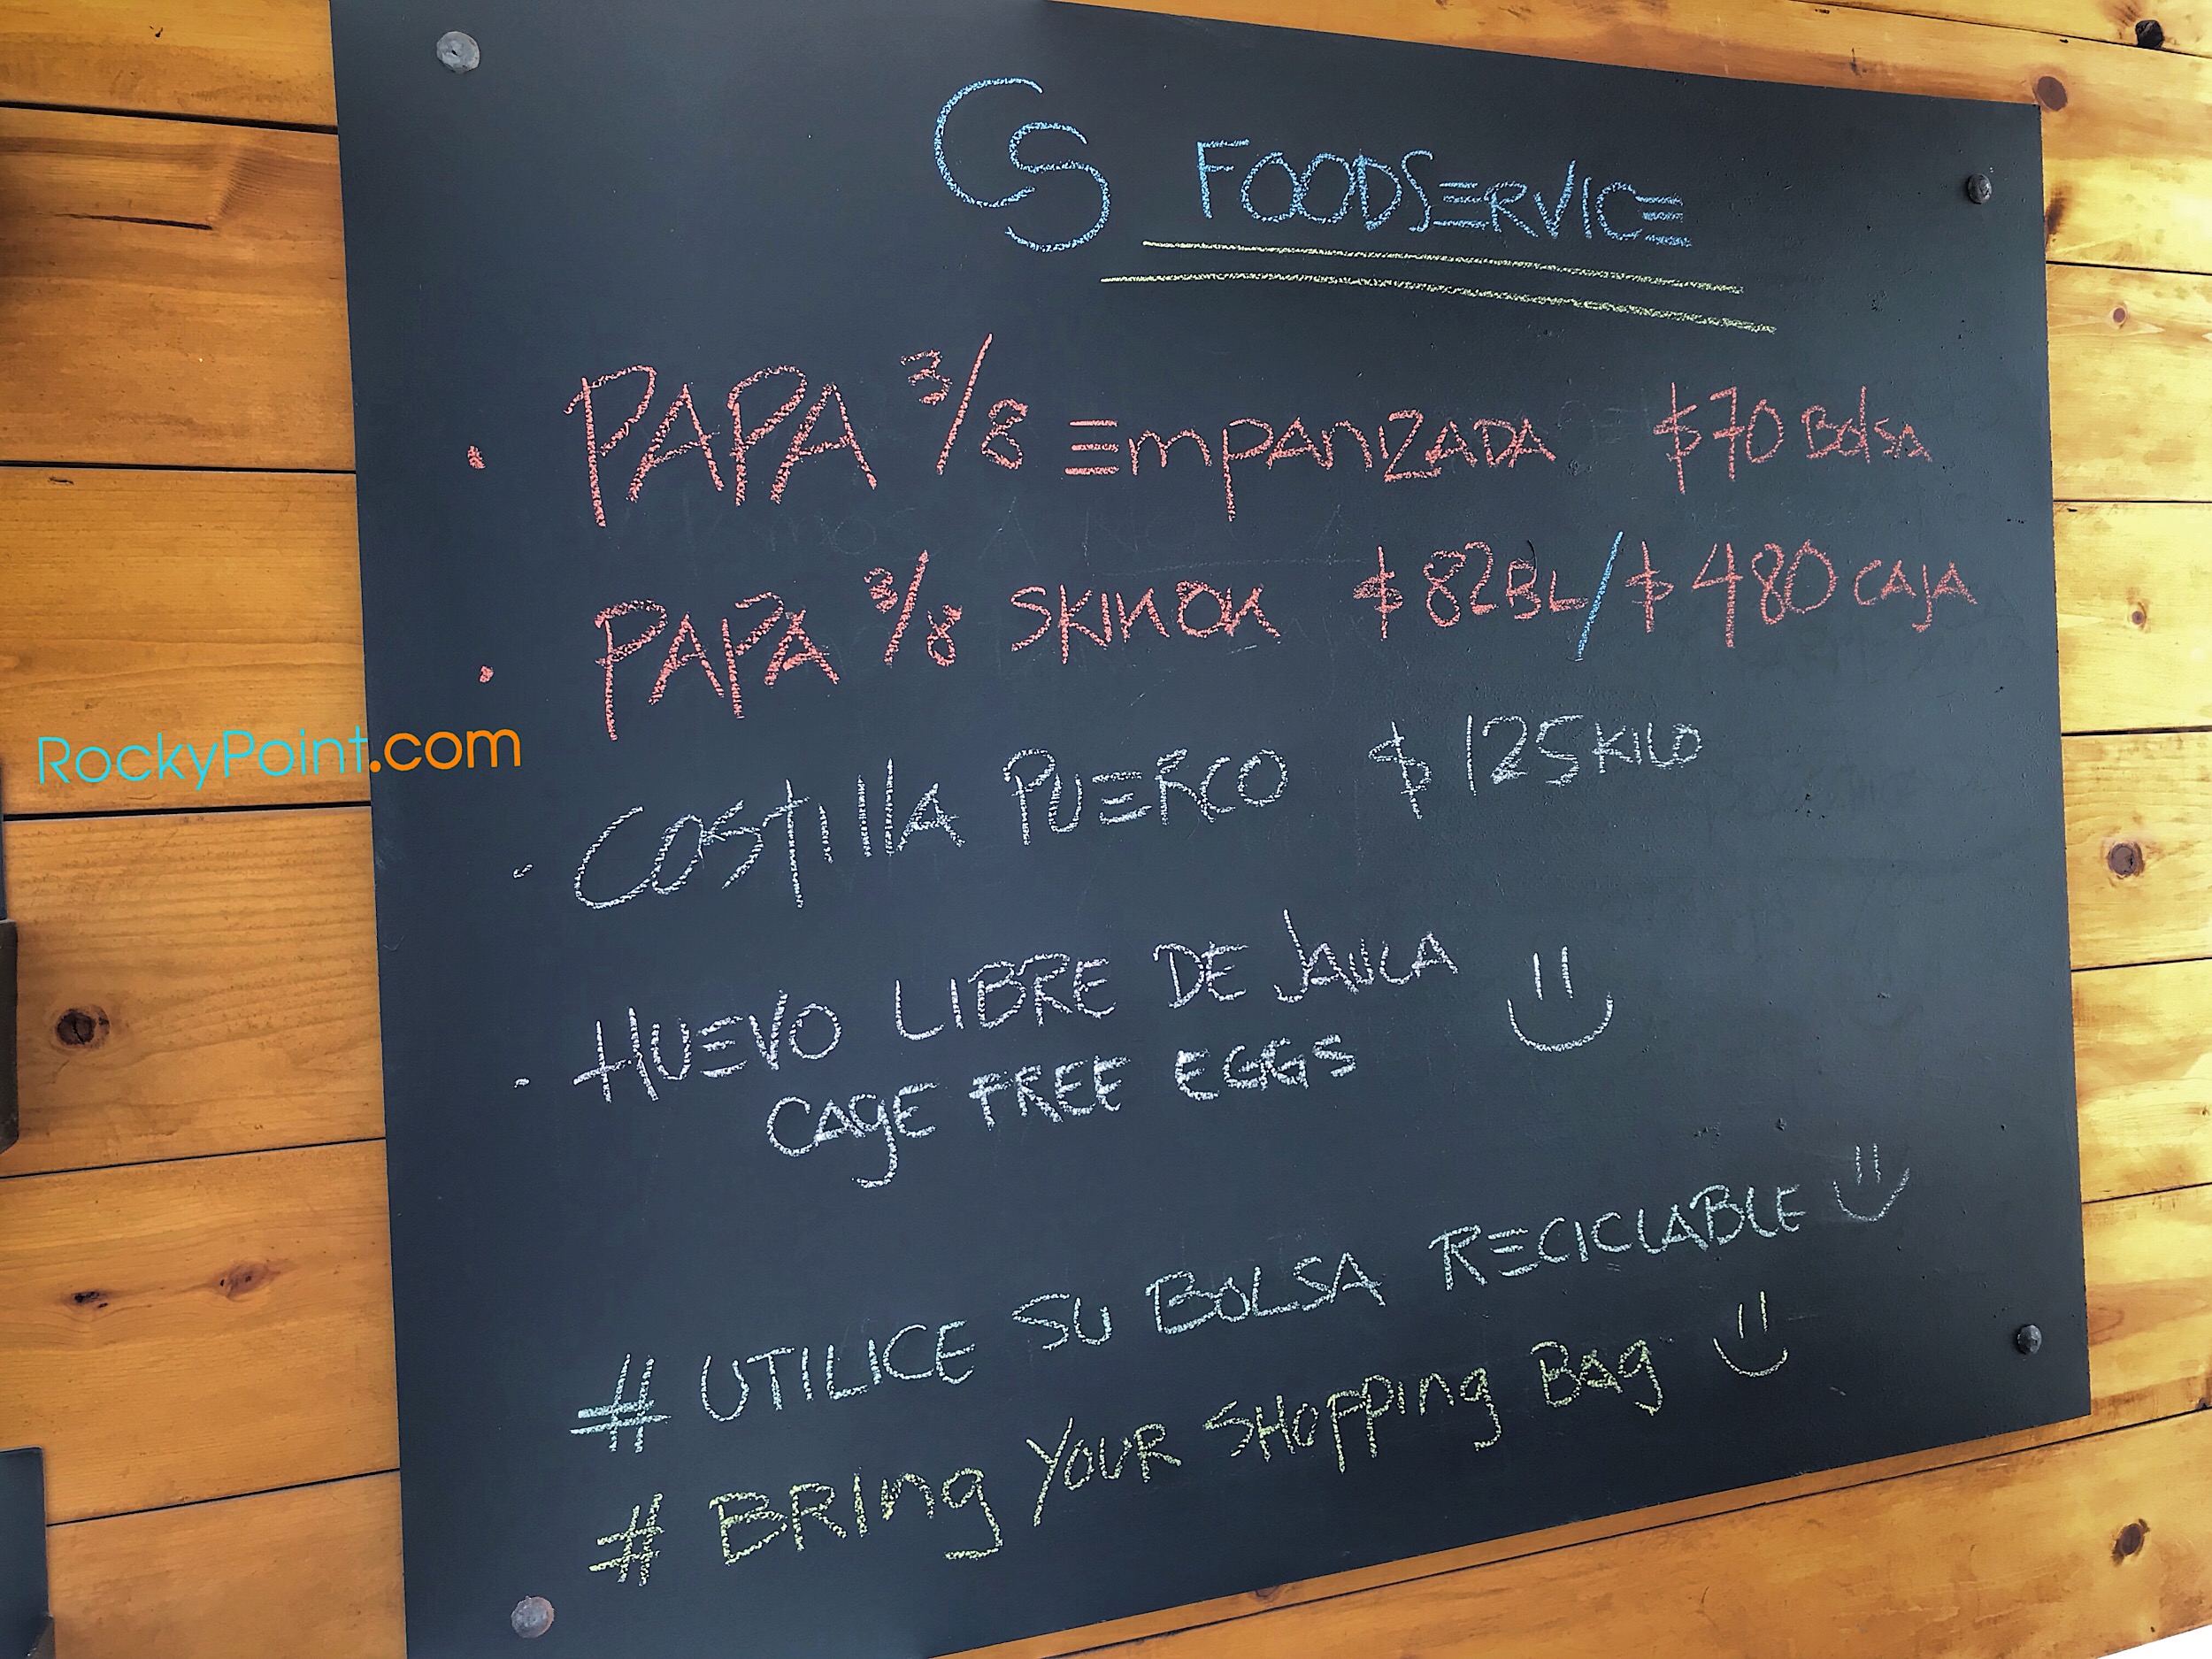 CS FOODSERVICE
• PAPA 3/8 EMPANIZADA $70 Bolsa
• PAPA 3/8 SKINON $82BL/$480 CAJA
RockyPoint.com
• COSTILLA PUERCO $125 KILO
• HUEVO LIBRE DE JAULA
CAGE FREE EGGS
# UTILICE SU BOLSA RECICLABLE
# BRING YOUR SHOPPING BAG